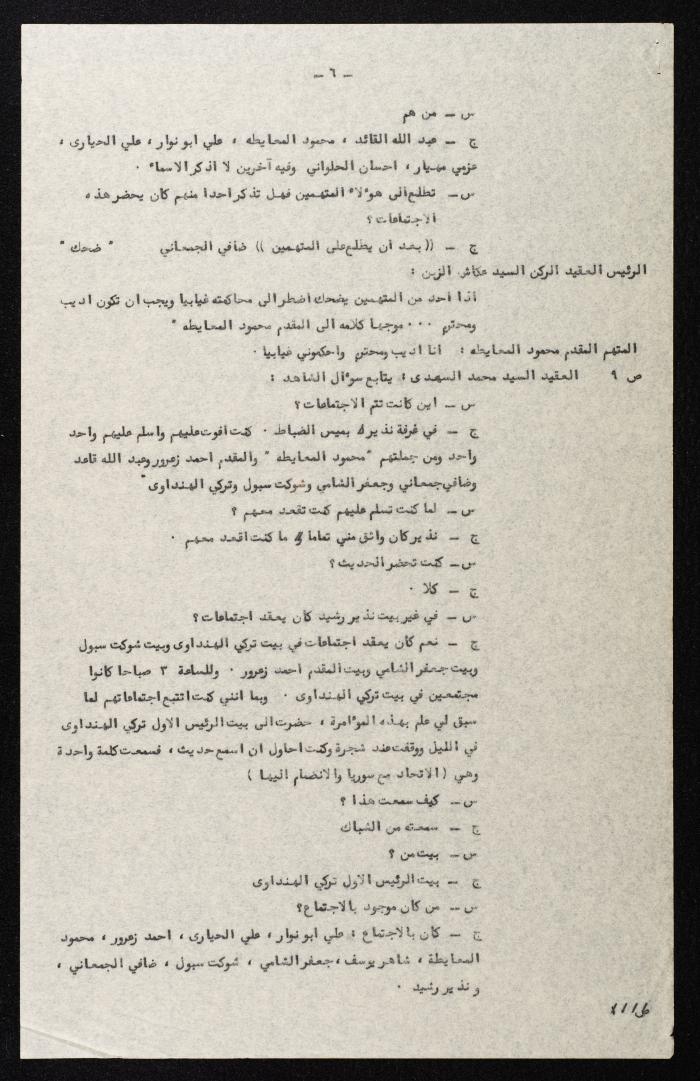 - ٦ -
س - من هم
ج - عبد الله القائد ، محمود المعايطه ، علي ابو نوار ، علي الحيارى ،
عزمي مهيار ، احسان الحلواني وفيه آخرين لا اذكر الاسماء .
س - تطلع الى هؤلاء المتهمين فهل تذكر احدا منهم كان يحضر هذه
الاجتماعات ؟
ج - (( بعد ان يطلع على المتهمين )) ضافي الجمعاني " ضحك "
الرئيس العقيد الركن السيد عكاش الزبن :
اذا احد من المتهمين يضحك اضطر الى محاكمته غيابيا ويجب ان تكون اديب
ومحترم ... موجها كلامه الى المقدم محمود المعايطه "
المتهم المقدم محمود المعايطه : انا اديب ومحترم واحكموني غيابيا .
ص ٩ العقيد السيد محمد السعدى : يتابع سؤال الشاهد :
س - اين كانت تتم الاجتماعات ؟
ج - في غرفة نذير بميس الضباط . كنت افوت عليهم واسلم عليهم واحد
واحد ومن جملتهم " محمود المعايطه " والمقدم احمد زعرور وعبد الله قاعد
وضافي جمعاني وجعفر الشامي وشوكت سبول وتركي الهنداوى "
س - لما كنت تسلم عليهم كنت تقعد معهم ؟
ج - نذير كان واثق مني تماما ما كنت اقعد معهم .
س - كنت تحضر الحديث ؟
ج - كلا .
س - في غير بيت نذير رشيد كان يعقد اجتماعات ؟
ج - نعم كان يعقد اجتماعات في بيت تركي الهنداوى وبيت شوكت سبول
وبيت جعفر الشامي وبيت المقدم احمد زعرور . وللساعة ٣ صباحا كانوا
مجتمعين في بيت تركي الهنداوى . وبما انني كنت اتتبع اجتماعاتهم لما
سبق لي علم بهذه المؤامرة ، حضرت الى بيت الرئيس الاول تركي الهنداوى
في الليل ووقفت عند شجرة وكنت احاول ان اسمع حديث ، فسمعت كلمة واحدة
وهي ( الاتحاد مع سوريا والانضمام اليها )
س - كيف سمعت هذا ؟
ج - سمعته من الشباك
س - بيت من ؟
ج - بيت الرئيس الاول تركي الهنداوى
س - من كان موجود بالاجتماع ؟
ج - كان بالاجتماع : علي ابو نوار ، علي الحيارى ، احمد زعرور ، محمود
المعايطة ، شاهر يوسف ، جعفر الشامي ، شوكت سبول ، ضافي الجمعاني ،
ونذير رشيد .